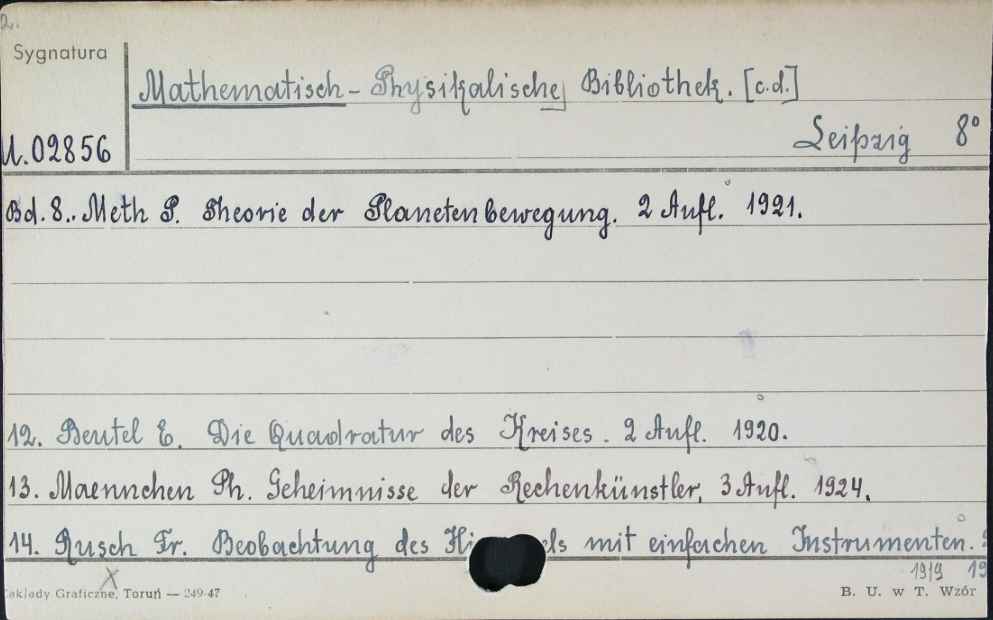 2.
Sygnatura
Mathematisch - Physikalische Bibliothek. [c.d.]
U.02856
Leipzig 8°
Bd. 8.. Meth P. Theorie der Planetenbewegung. 2 Aufl. 1921.
12. Beutel E. Die Quadratur des Kreises. 2 Aufl. 1920.
13. Maennchen Ph. Geheimnisse der Rechenkünstler, 3 Aufl. 1924.
14. Rusch Fr. Beobachtung des mit einfachen Instrumenten.
1919 19
Zakłady Graficzne, Toruń — 249-47
B. U. w T. Wzór